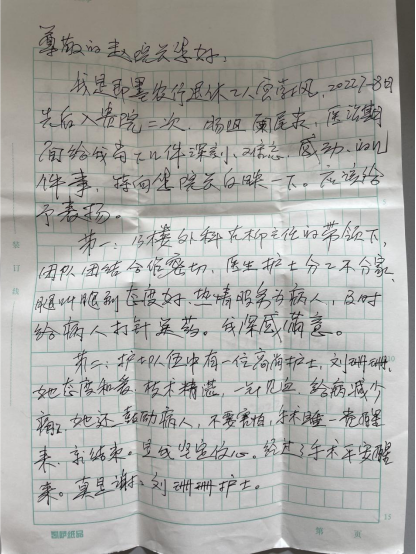 尊敬的赵院长您好:
我是即墨农行退休工人医学风,2022.7-8月
先后入贵院二次,肠阻阑尾炎,医治期
间给我留下几件深刻、难忘、感动的几
件事,特向赵院长白映一下。应该给
予表扬。
第一:13楼外科在柳主任的带领下,
团队团结合作密切,医生护士分工不分家,
随叫随到态度好,热情服务为病人,及时
给病人打针吃药。我深感满意。
第二:护士队伍中有一位高尚护士,刘珊珊,
她态度和蔼,技术精湛,一针见血,给病减少
痛,她还鼓励病人,不要害怕,手术睡一觉醒
来,就结束。坚定信心。经过了手术平安醒
来。真是谢谢刘珊珊护士。
装订线
凯萨纸品
第 页
15